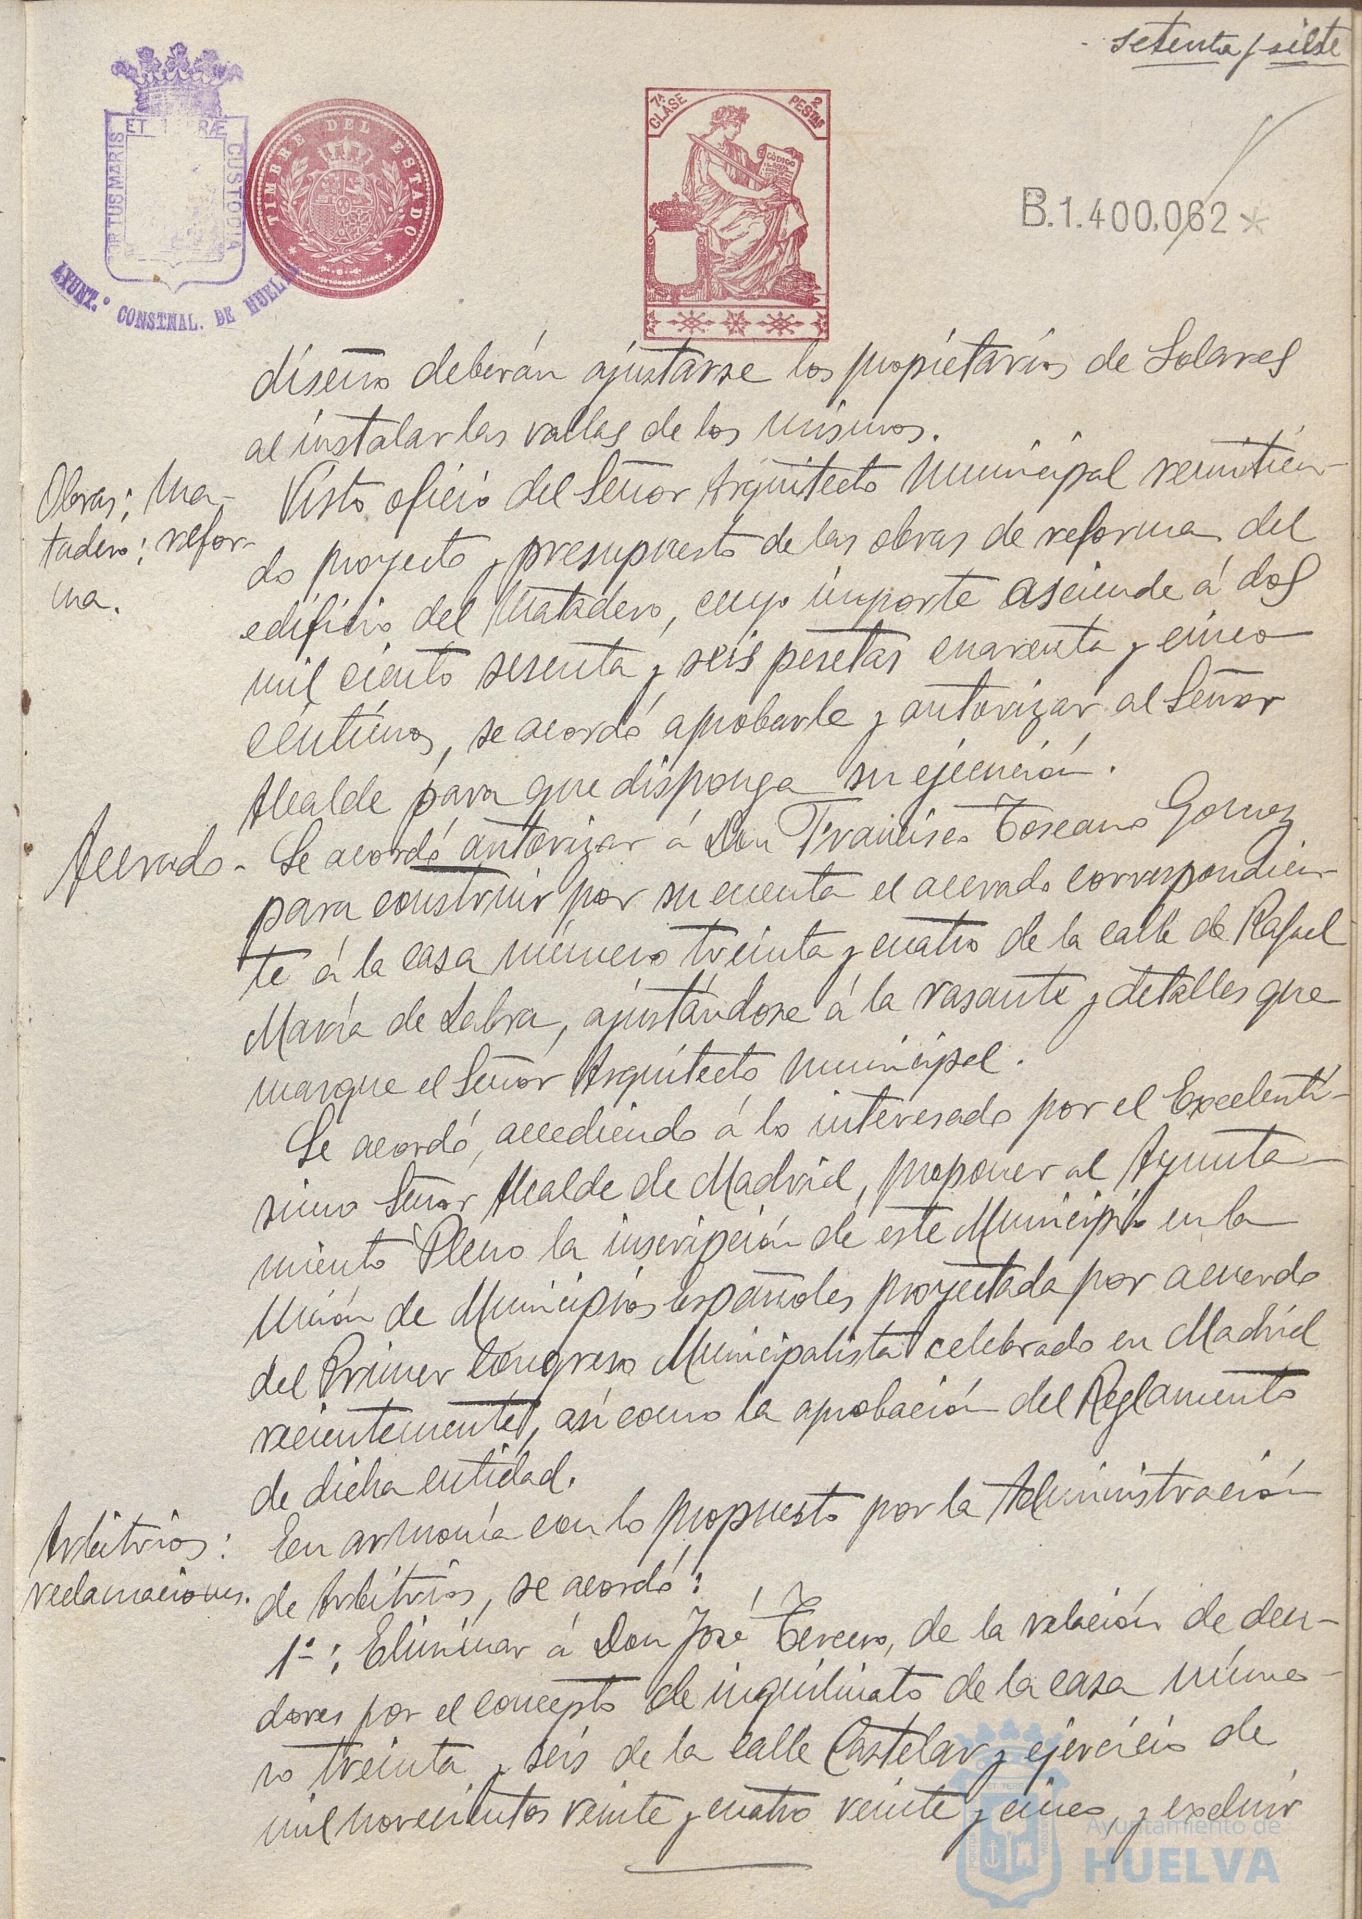 setenta y siete
ET TERRÆ
PORTUS MARIS
CUSTODIA
AYUNT.º CONSTNAL. DE HUELVA
TIMBRE DEL ESTADO
7ª CLASE
2 PESTAS
CÓDIGO
B.1.400,062*
diseño deberán ajustarse los propietarios de Solares
al instalar las vallas de los mismos.
Obras; Ma-
tadero; refor-
ma.
Visto oficio del Señor Arquitecto Municipal remitien-
do proyecto y presupuesto de las obras de reforma del
edificio del Matadero, cuyo importe asciende á dos
mil ciento sesenta y seis pesetas cuarenta y cinco
céntimos, se acordó aprobarle y autorizar al Señor
Alcalde para que disponga su ejecución.
Acerado-
Se acordó autorizar á Don Francisco Toscano Gomez
para construir por su cuenta el acerado correspondien-
te á la casa número treinta y cuatro de la calle de Rafael
María de Labra, ajustándose á la rasante y detalles que
marque el Señor Arquitecto Municipal.
Se acordó, accediendo á lo interesado por el Excelentí-
simo Señor Alcalde de Madrid, proponer al Ayunta-
miento Pleno la inscripción de este Municipio en la
Unión de Municipios españoles proyectada por acuerdo
del Primer Congreso Municipalista celebrado en Madrid
recientemente, así como la aprobación del Reglamento
de dicha entidad.
Arbitrios:
reclamaciones.
En armonía con lo propuesto por la Administración
de Arbitrios, se acordó:
1º: Eliminar á Don José Tercero, de la relación de deu-
dores por el concepto de inquilinato de la casa núme-
ro treinta y seis de la calle Castelar y ejercicio de
mil novecientos veinte y cuatro veinte y cinco, y excluir
Ayuntamiento de
HUELVA